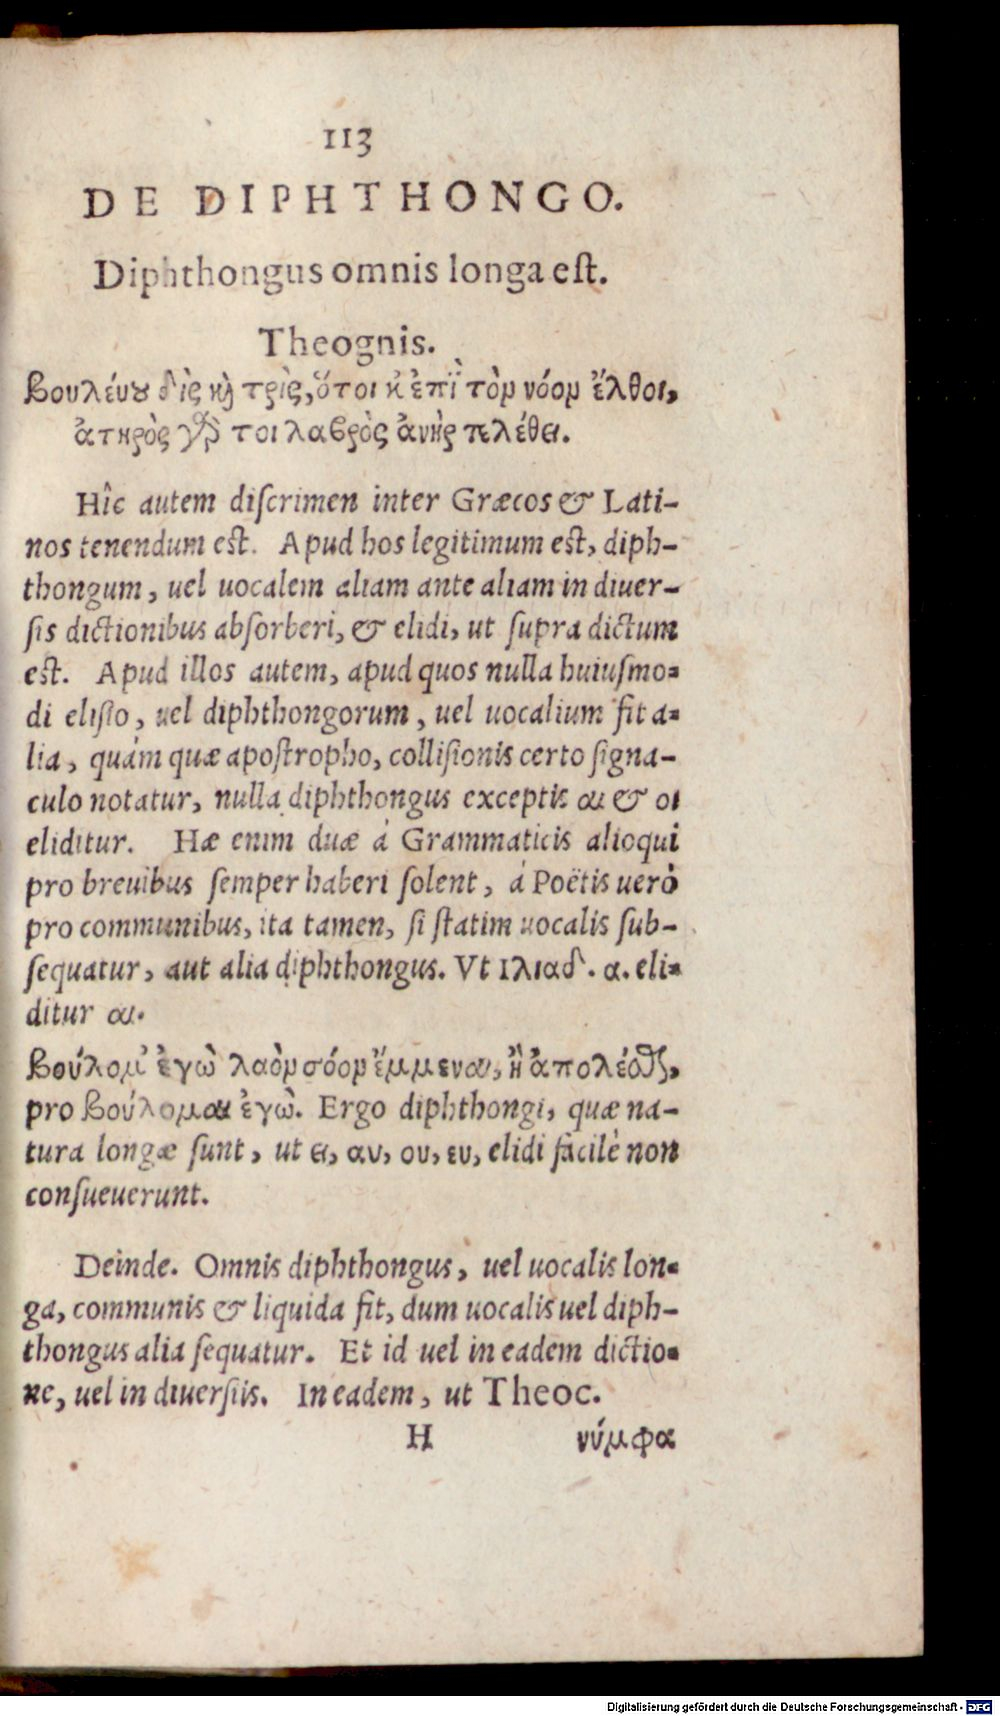 113
DE DIPHTHONGO.
Diphthongus omnis longa est.
Theognis.
Βουλεύου δὶς καὶ τρὶς, ὅτοι κ' ἐπὶ τὸν νόον ἔλθοι,
ἀτηρὸς γάρ τοι λαβρὸς ἀνὴρ πελέθει.
Hîc autem discrimen inter Græcos & Lati-
nos tenendum est. Apud hos legitimum est, diph-
thongum, uel uocalem aliam ante aliam in diuer-
sis dictionibus absorberi, & elidi, ut supra dictum
est. Apud illos autem, apud quos nulla huiusmo-
di elisio, uel diphthongorum, uel uocalium fit a-
lia, quàm quæ apostropho, collisionis certo signa-
culo notatur, nulla diphthongus exceptis αι & οι
eliditur. Hæ enim duæ à Grammaticis alioqui
pro breuibus semper haberi solent, à Poëtis uerò
pro communibus, ita tamen, si statim uocalis sub-
sequatur, aut alia diphthongus. Vt Ιλιαδ. α. eli-
ditur αι.
Βούλομ' ἐγὼ λαὸν σόον ἔμμεναι, ἢ ἀπολέσθαι,
pro Βούλομαι ἐγὼ. Ergo diphthongi, quæ na-
tura longæ sunt, ut ει, αυ, ου, ευ, elidi facilè non
consueuerunt.
Deinde. Omnis diphthongus, uel uocalis lon-
ga, communis & liquida fit, dum uocalis uel diph-
thongus alia sequatur. Et id uel in eadem dictio-
ne, uel in diuersiis. In eadem, ut Theoc.
H νύμφα
Digitalisierung gefördert durch die Deutsche Forschungsgemeinschaft - DFG